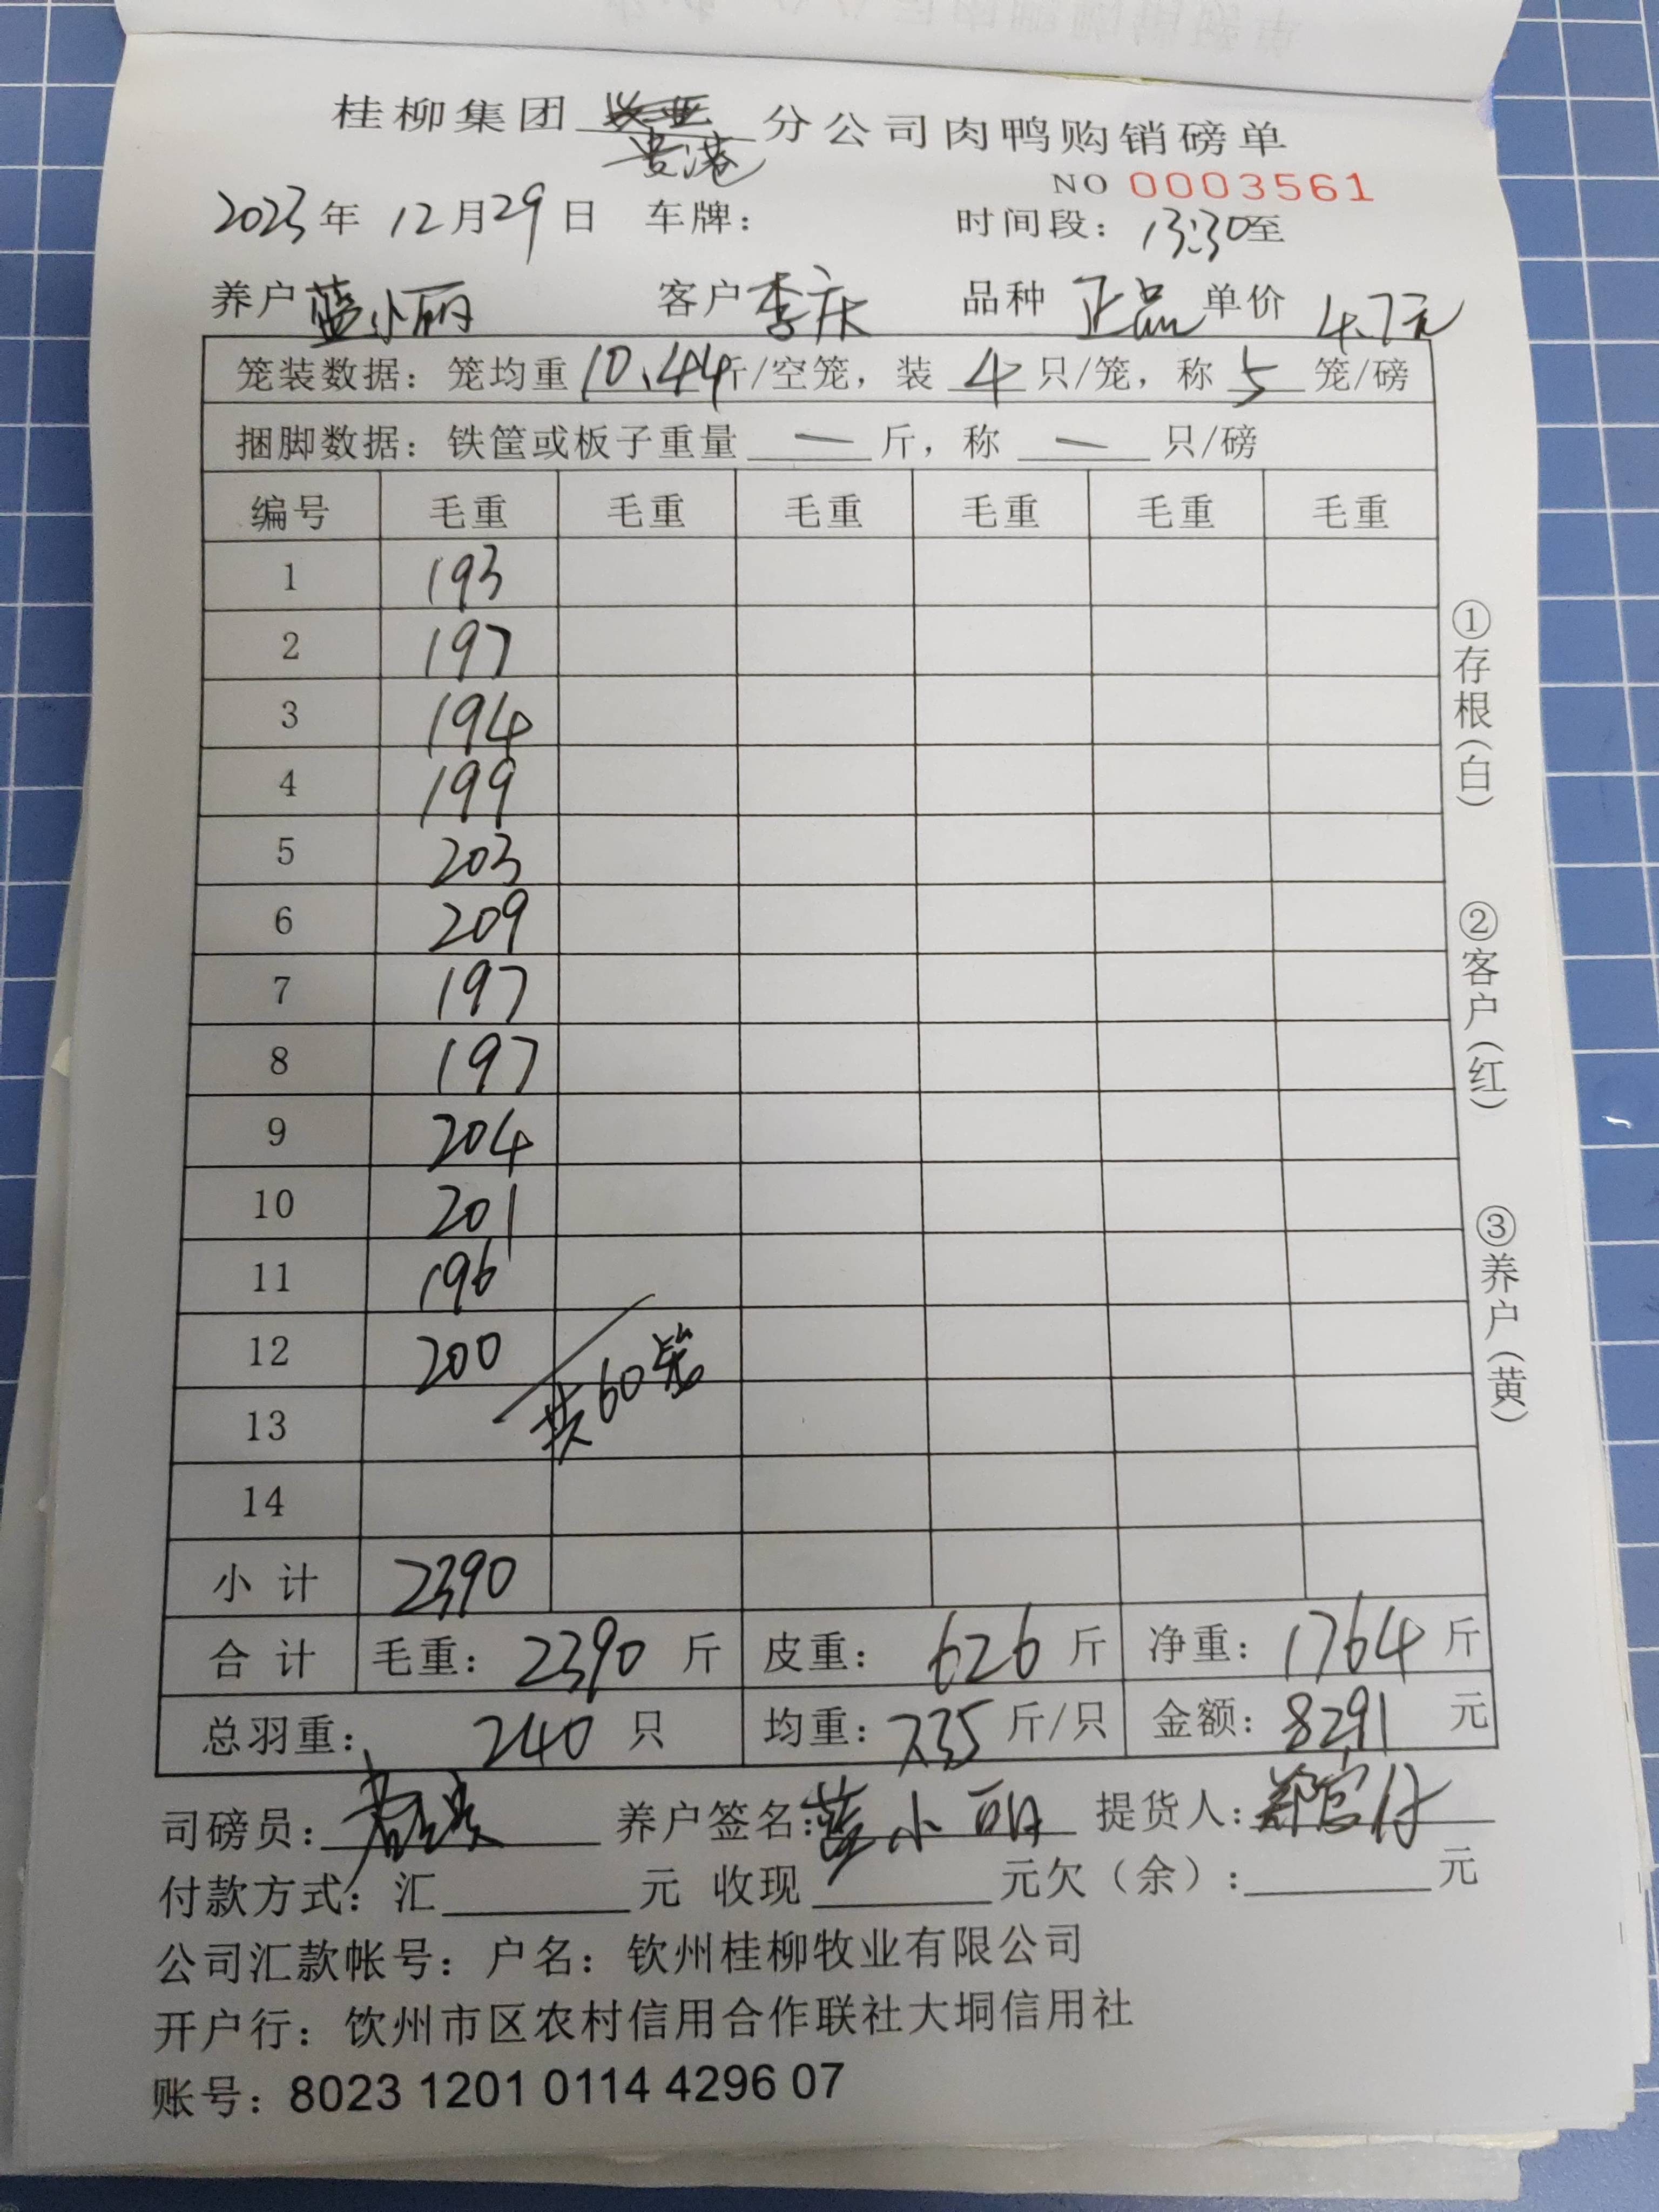 桂柳集团 贵港 分公司肉鸭购销磅单
NO 0003561
2023年 12月29日 车牌： 时间段：13:30至
养户 蓝小丽 客户 李庆 品种 正品 单价 4.7元
笼装数据：笼均重 10.44斤/空笼，装 4 只/笼，称 5 笼/磅
捆脚数据：铁筐或板子重量 — 斤，称 — 只/磅
编号 毛重 毛重 毛重 毛重 毛重 毛重
1 193
2 197
3 194
4 199
5 203
6 209
7 197
8 197
9 204
10 201
11 196
12 200
共60笼
13
14
小计 2390
合计 毛重：2390 斤 皮重：626 斤 净重：1764 斤
总羽重：240 只 均重：7.35 斤/只 金额：8291 元
司磅员： 养户签名：蓝小丽 提货人：
付款方式：汇 元 收现 元欠（余）： 元
公司汇款帐号：户名：钦州桂柳牧业有限公司
开户行：钦州市区农村信用合作联社大垌信用社
账号：8023 1201 0114 4296 07
①存根（白）
②客户（红）
③养户（黄）